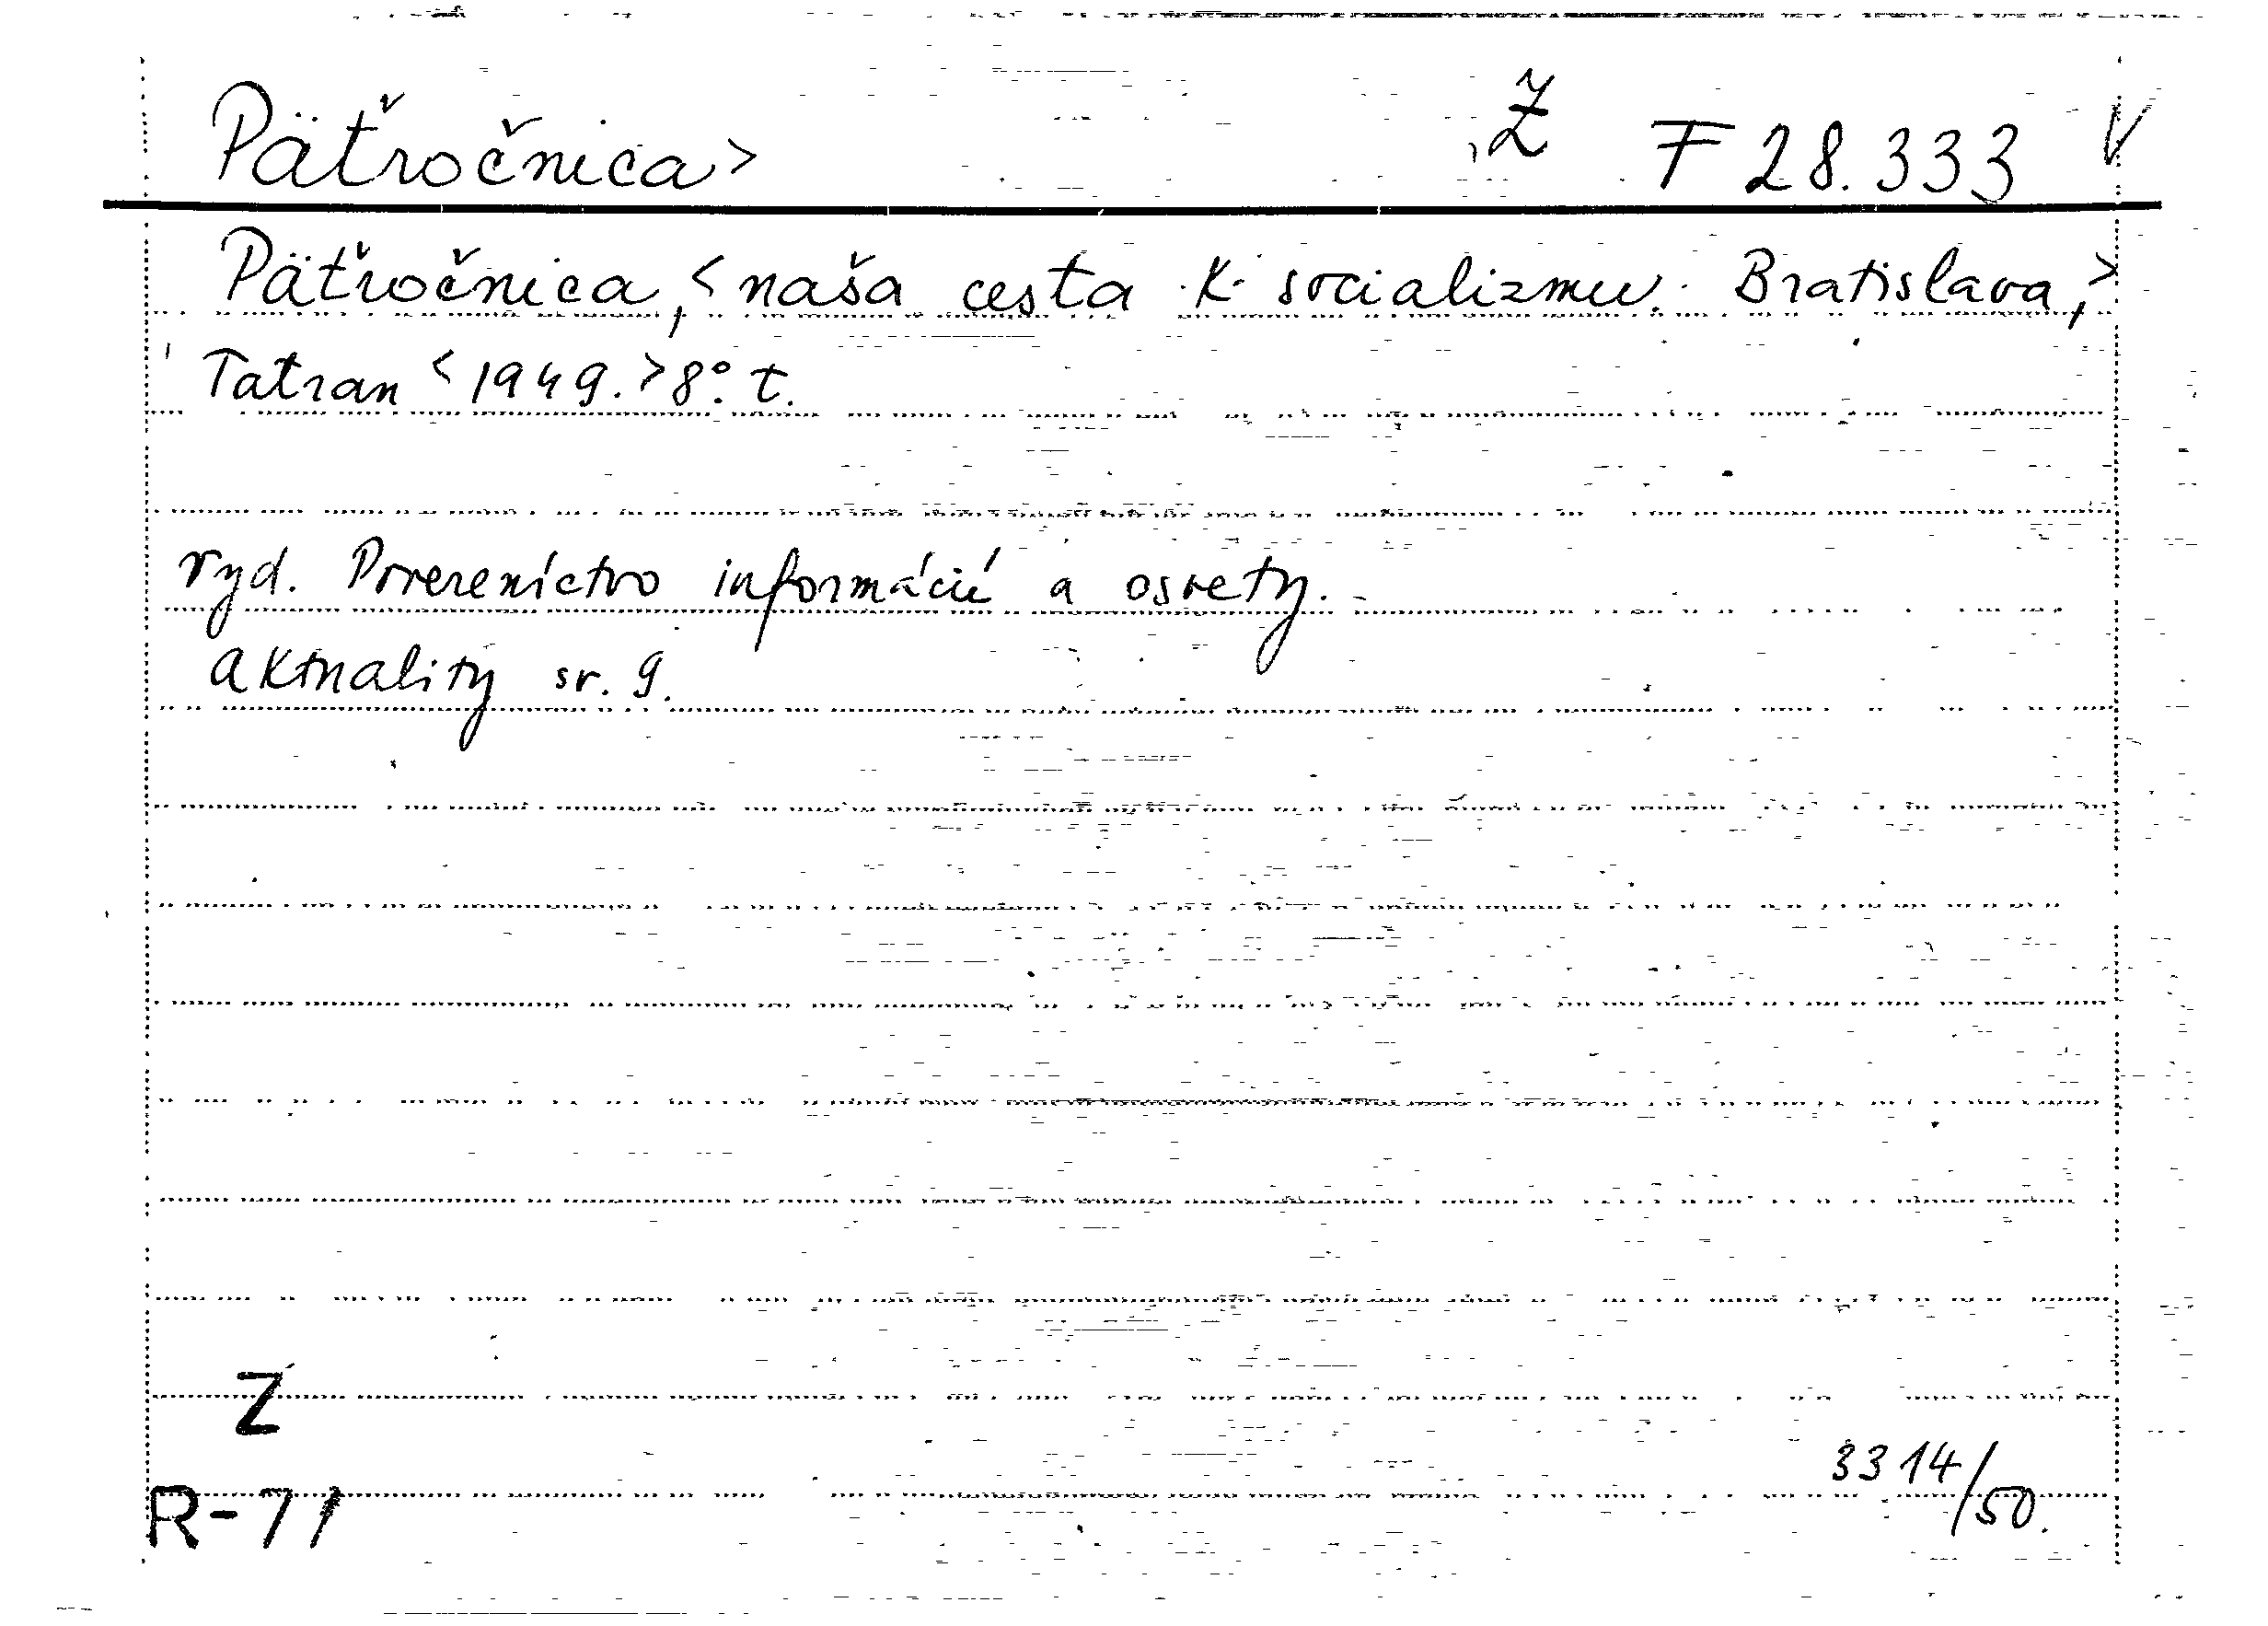 Päťročnica> Ž F 28.333 V
Päťročnica, <naša cesta k socializmu. Bratislava,>
Tatran <1949.> 8°. t.
vyd. Povereníctvo informácií a osvety.
Aktuality sv. 9.
Z
3314/50.
R-71